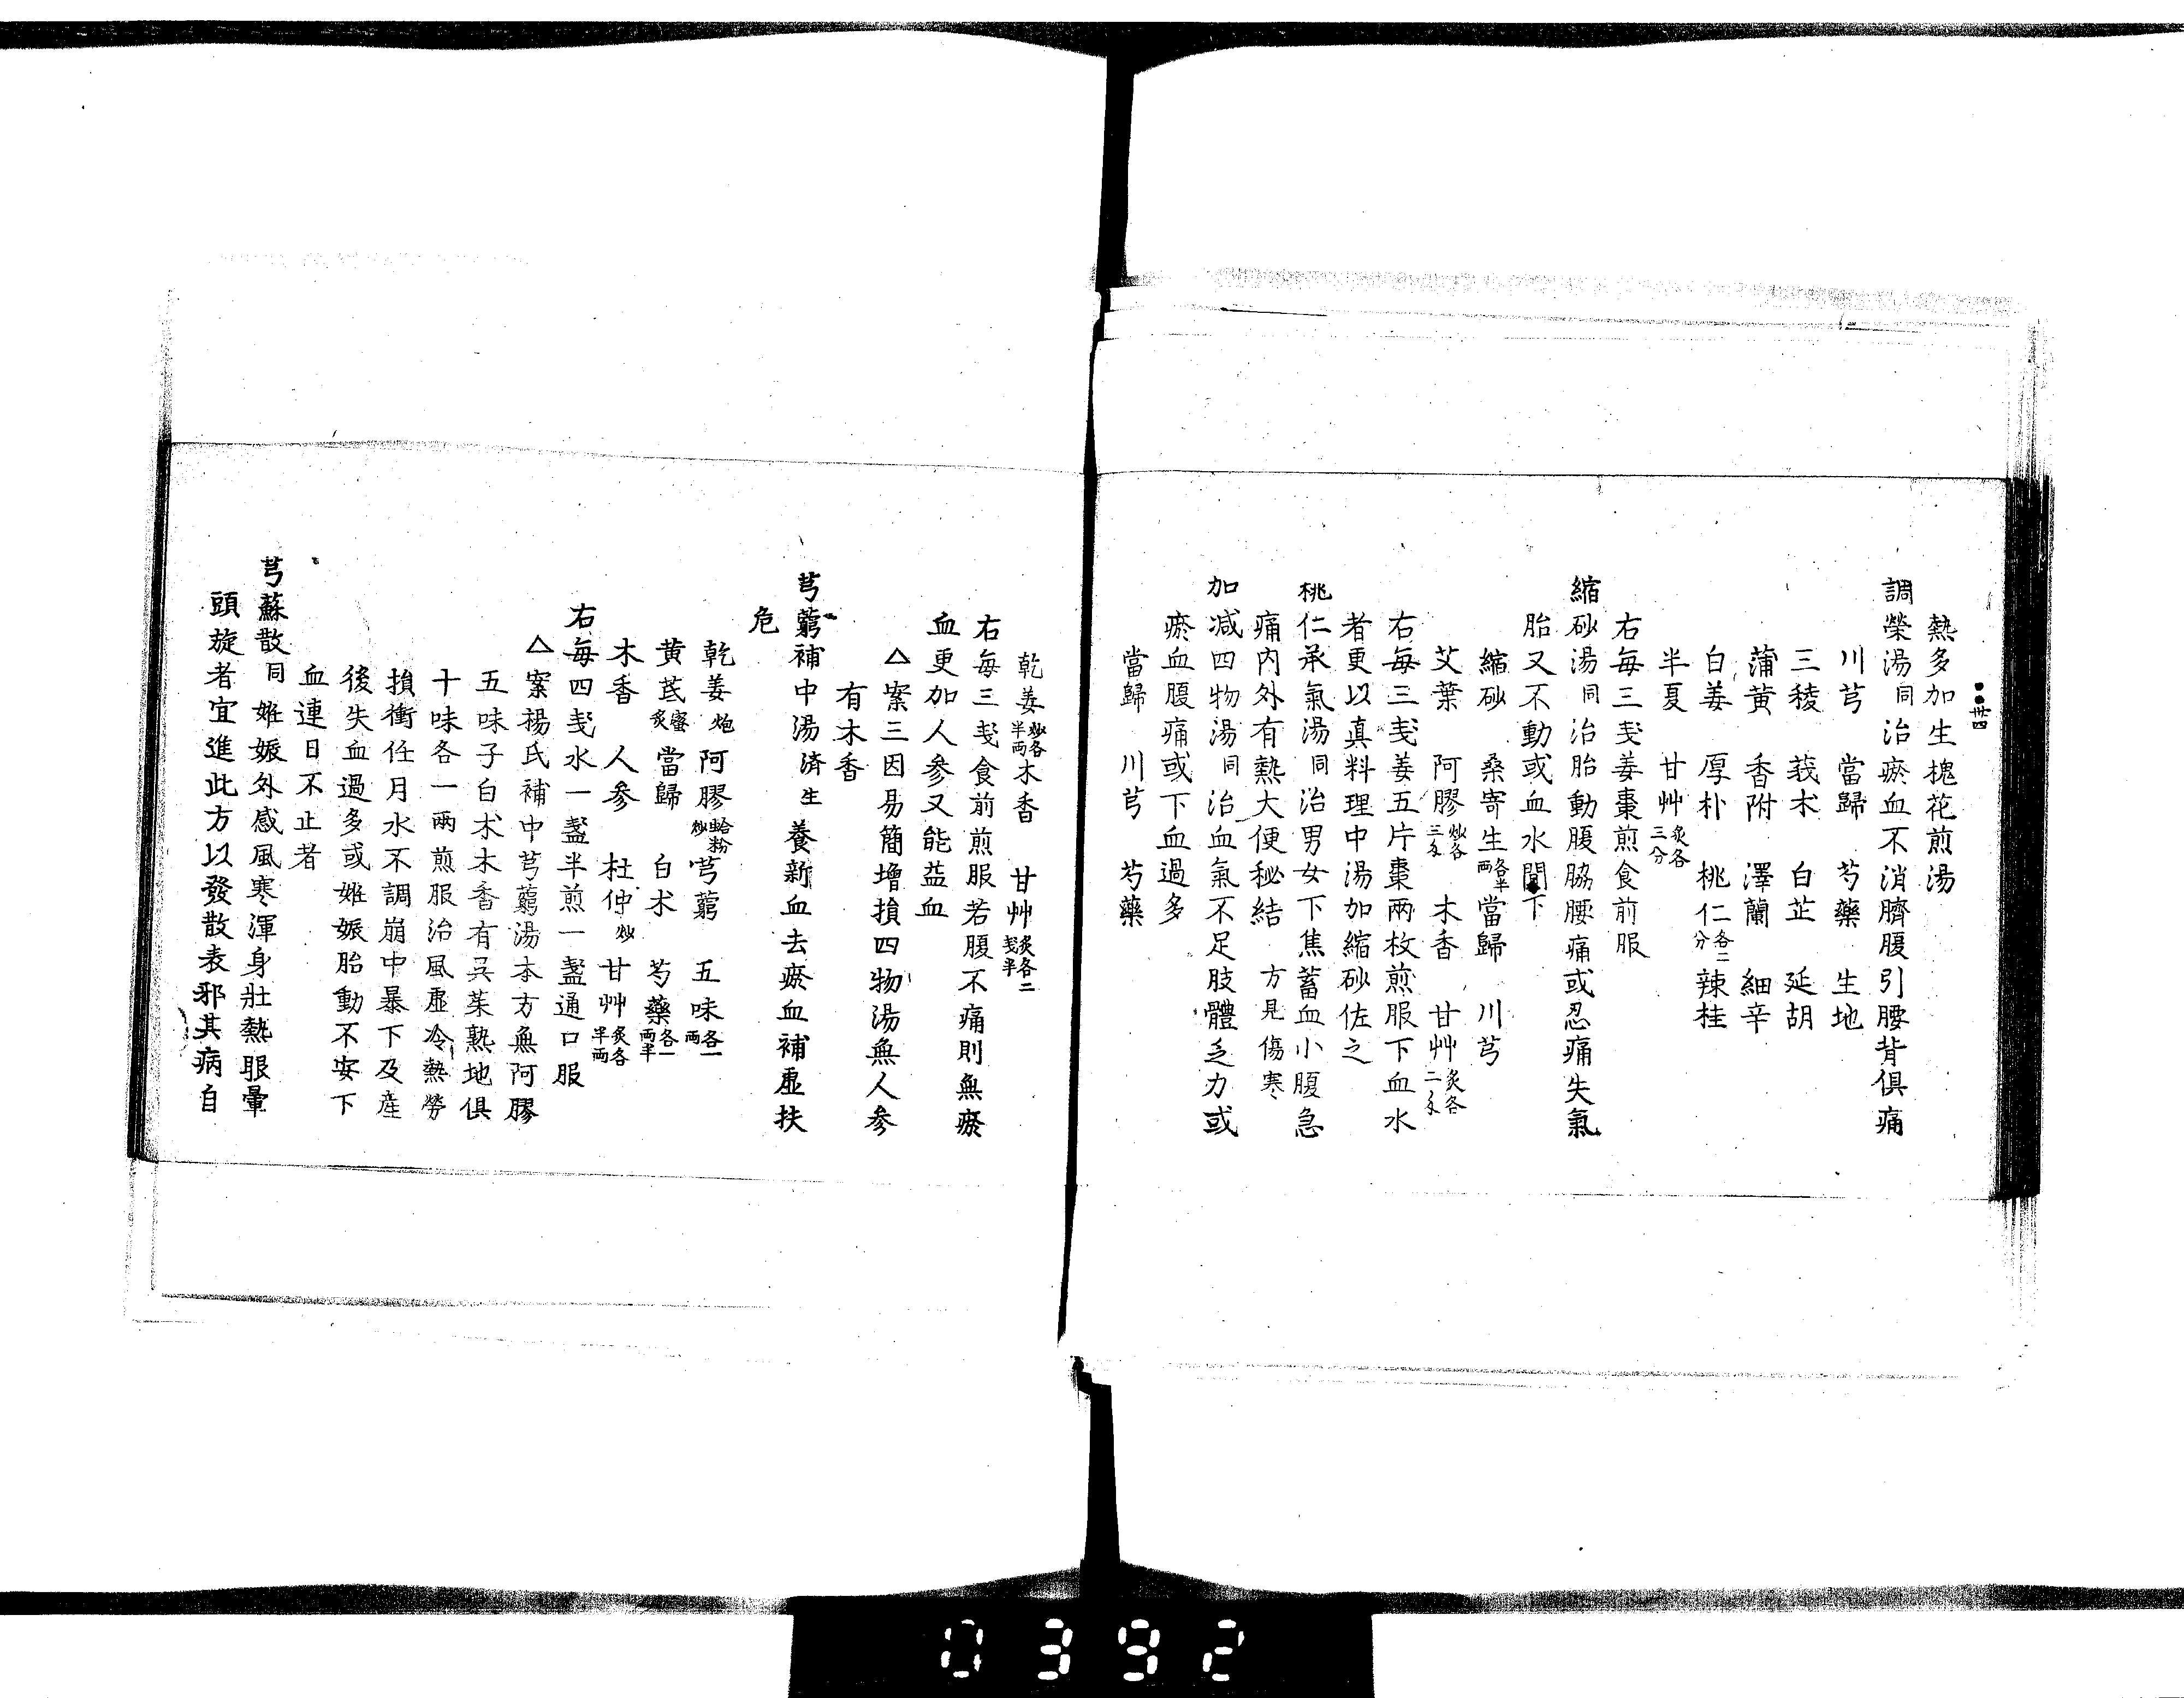 卅四
熱多加生槐花煎湯
調榮湯同治瘀血不消臍腹引腰背俱痛
川芎 當歸 芍藥 生地
三稜 莪朮 白芷 延胡
蒲黄 香附 澤蘭 細辛
白姜 厚朴 桃仁各二分 辣桂
半夏 甘艸炙各三分
右毎三戔姜棗煎食前服
縮砂湯同治胎動腹脇腰痛或忍痛失氣
胎又不動或血水間下
縮砂 桑寄生各半両 當歸 川芎
艾葉 阿膠炒各三戔 木香 甘艸炙各二戔
右毎三戔姜五片棗兩枚煎服下血水
者更以真料理中湯加縮砂佐之
桃仁承氣湯同治男女下焦蓄血小腹急
痛内外有熱大便秘結 方見傷寒
加减四物湯同治血氣不足肢體乏力或
瘀血腹痛或下血過多
當歸 川芎 芍藥
乾姜炒各半両 木香 甘艸炙各二戔半
右毎三戔食前煎服若腹不痛則無瘀
血更加人参又能益血
△案三因易簡増損四物湯無人参
有木香
芎藭補中湯済生養新血去瘀血補虚扶
危
乾姜炮 阿膠蛤粉炒 芎藭 五味各一両
黄茋蜜炙 當歸 白朮 芍藥各一両半
木香 人参 杜仲炒 甘艸炙各半両
右毎四戔水一盞半煎一盞通口服
△案楊氏補中芎藭湯本方無阿膠
五味子白朮木香有呉茱熟地倶
十味各一兩煎服治風虚冷熱勞
損衝任月水不調崩中暴下及産
後失血過多或姙娠胎動不安下
血連日不止者
芎蘇散同姙娠外感風寒渾身壯熱眼暈
頭旋者宜進此方以發散表邪其病自
0392